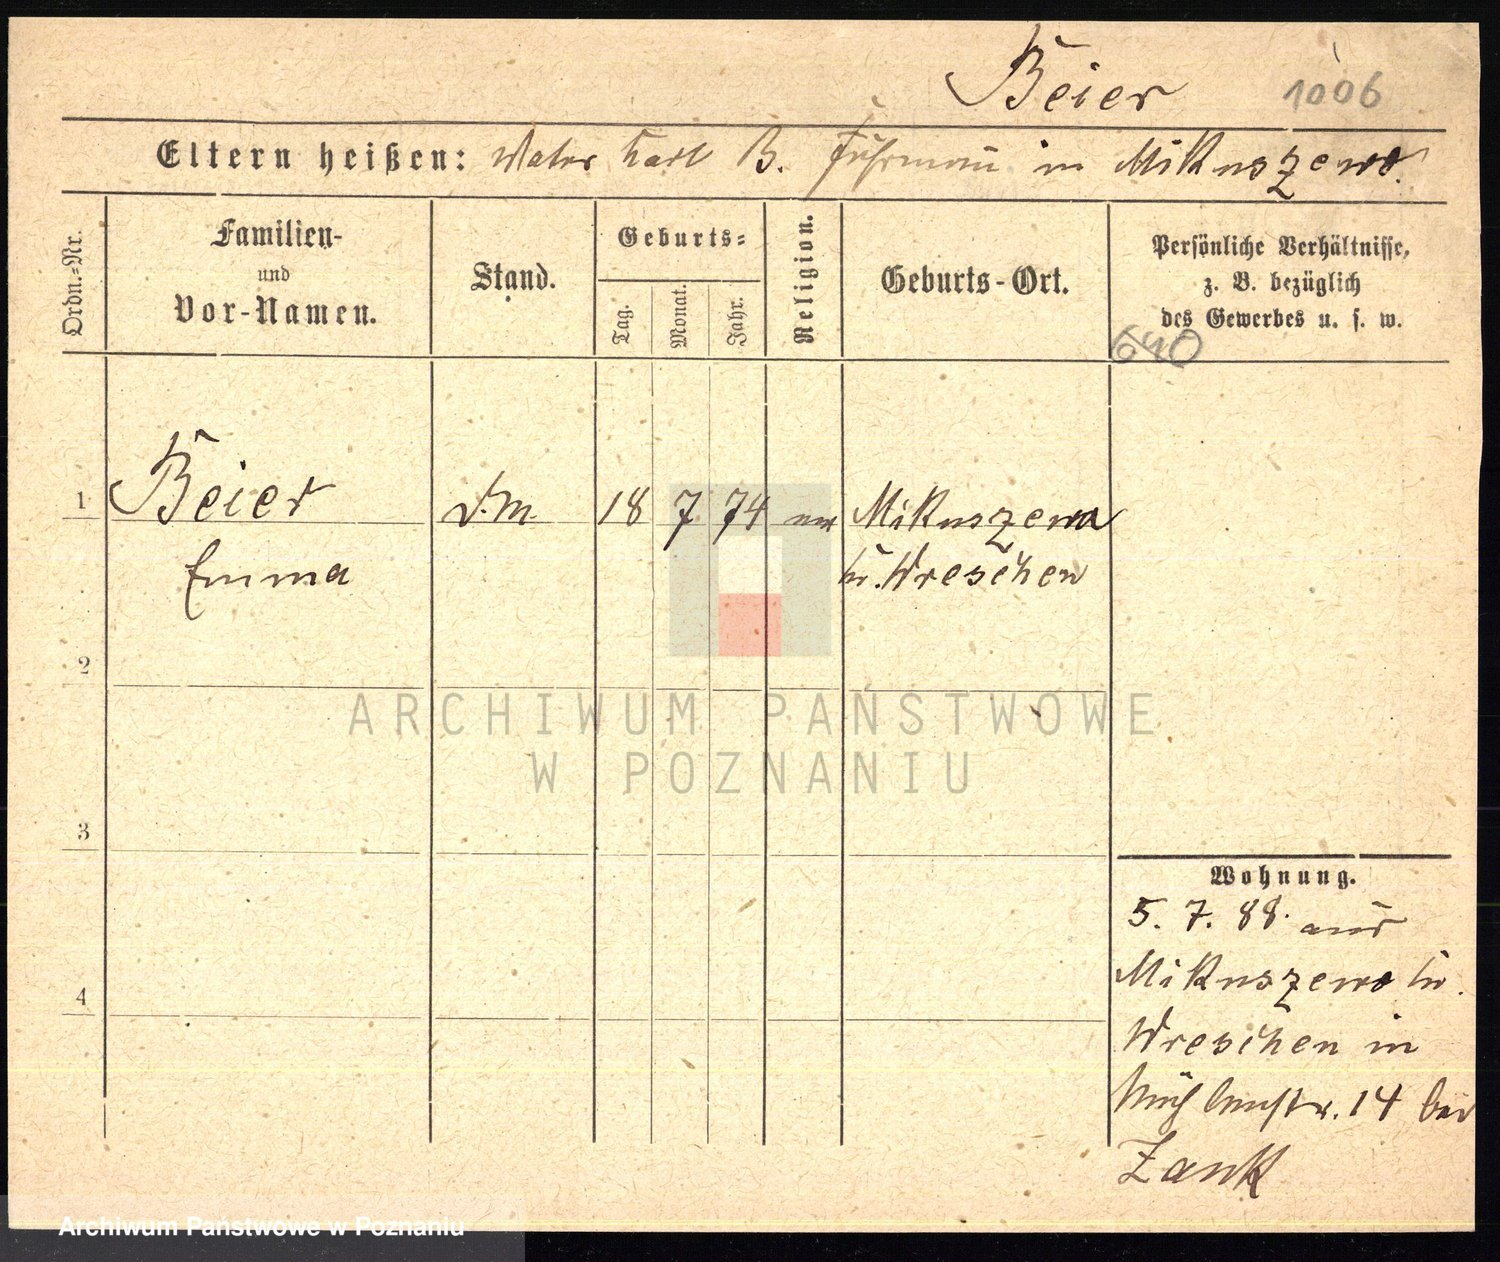 Beier 1006
Eltern heißen: Vater Karl B. Fuhrmann in Mikuszewo.
Ordn.-Nr.
Familien-
und
Vor-Namen.
Stand.
Geburts-
Tag.
Monat.
Jahr.
Religion.
Geburts-Ort.
Persönliche Verhältnisse,
z. B. bezüglich
des Gewerbes u. s. w.
640
1 Beier D.M. 18 7 74 ev Mikuszewo
Emma Kr. Wreschen
2
3
4
Wohnung.
5. 7. 88. aus
Mikuszewo Kr.
Wreschen in
Mühlenstr. 14 bei
Zank
ARCHIWUM PAŃSTWOWE
W POZNANIU
Archiwum Państwowe w Poznaniu